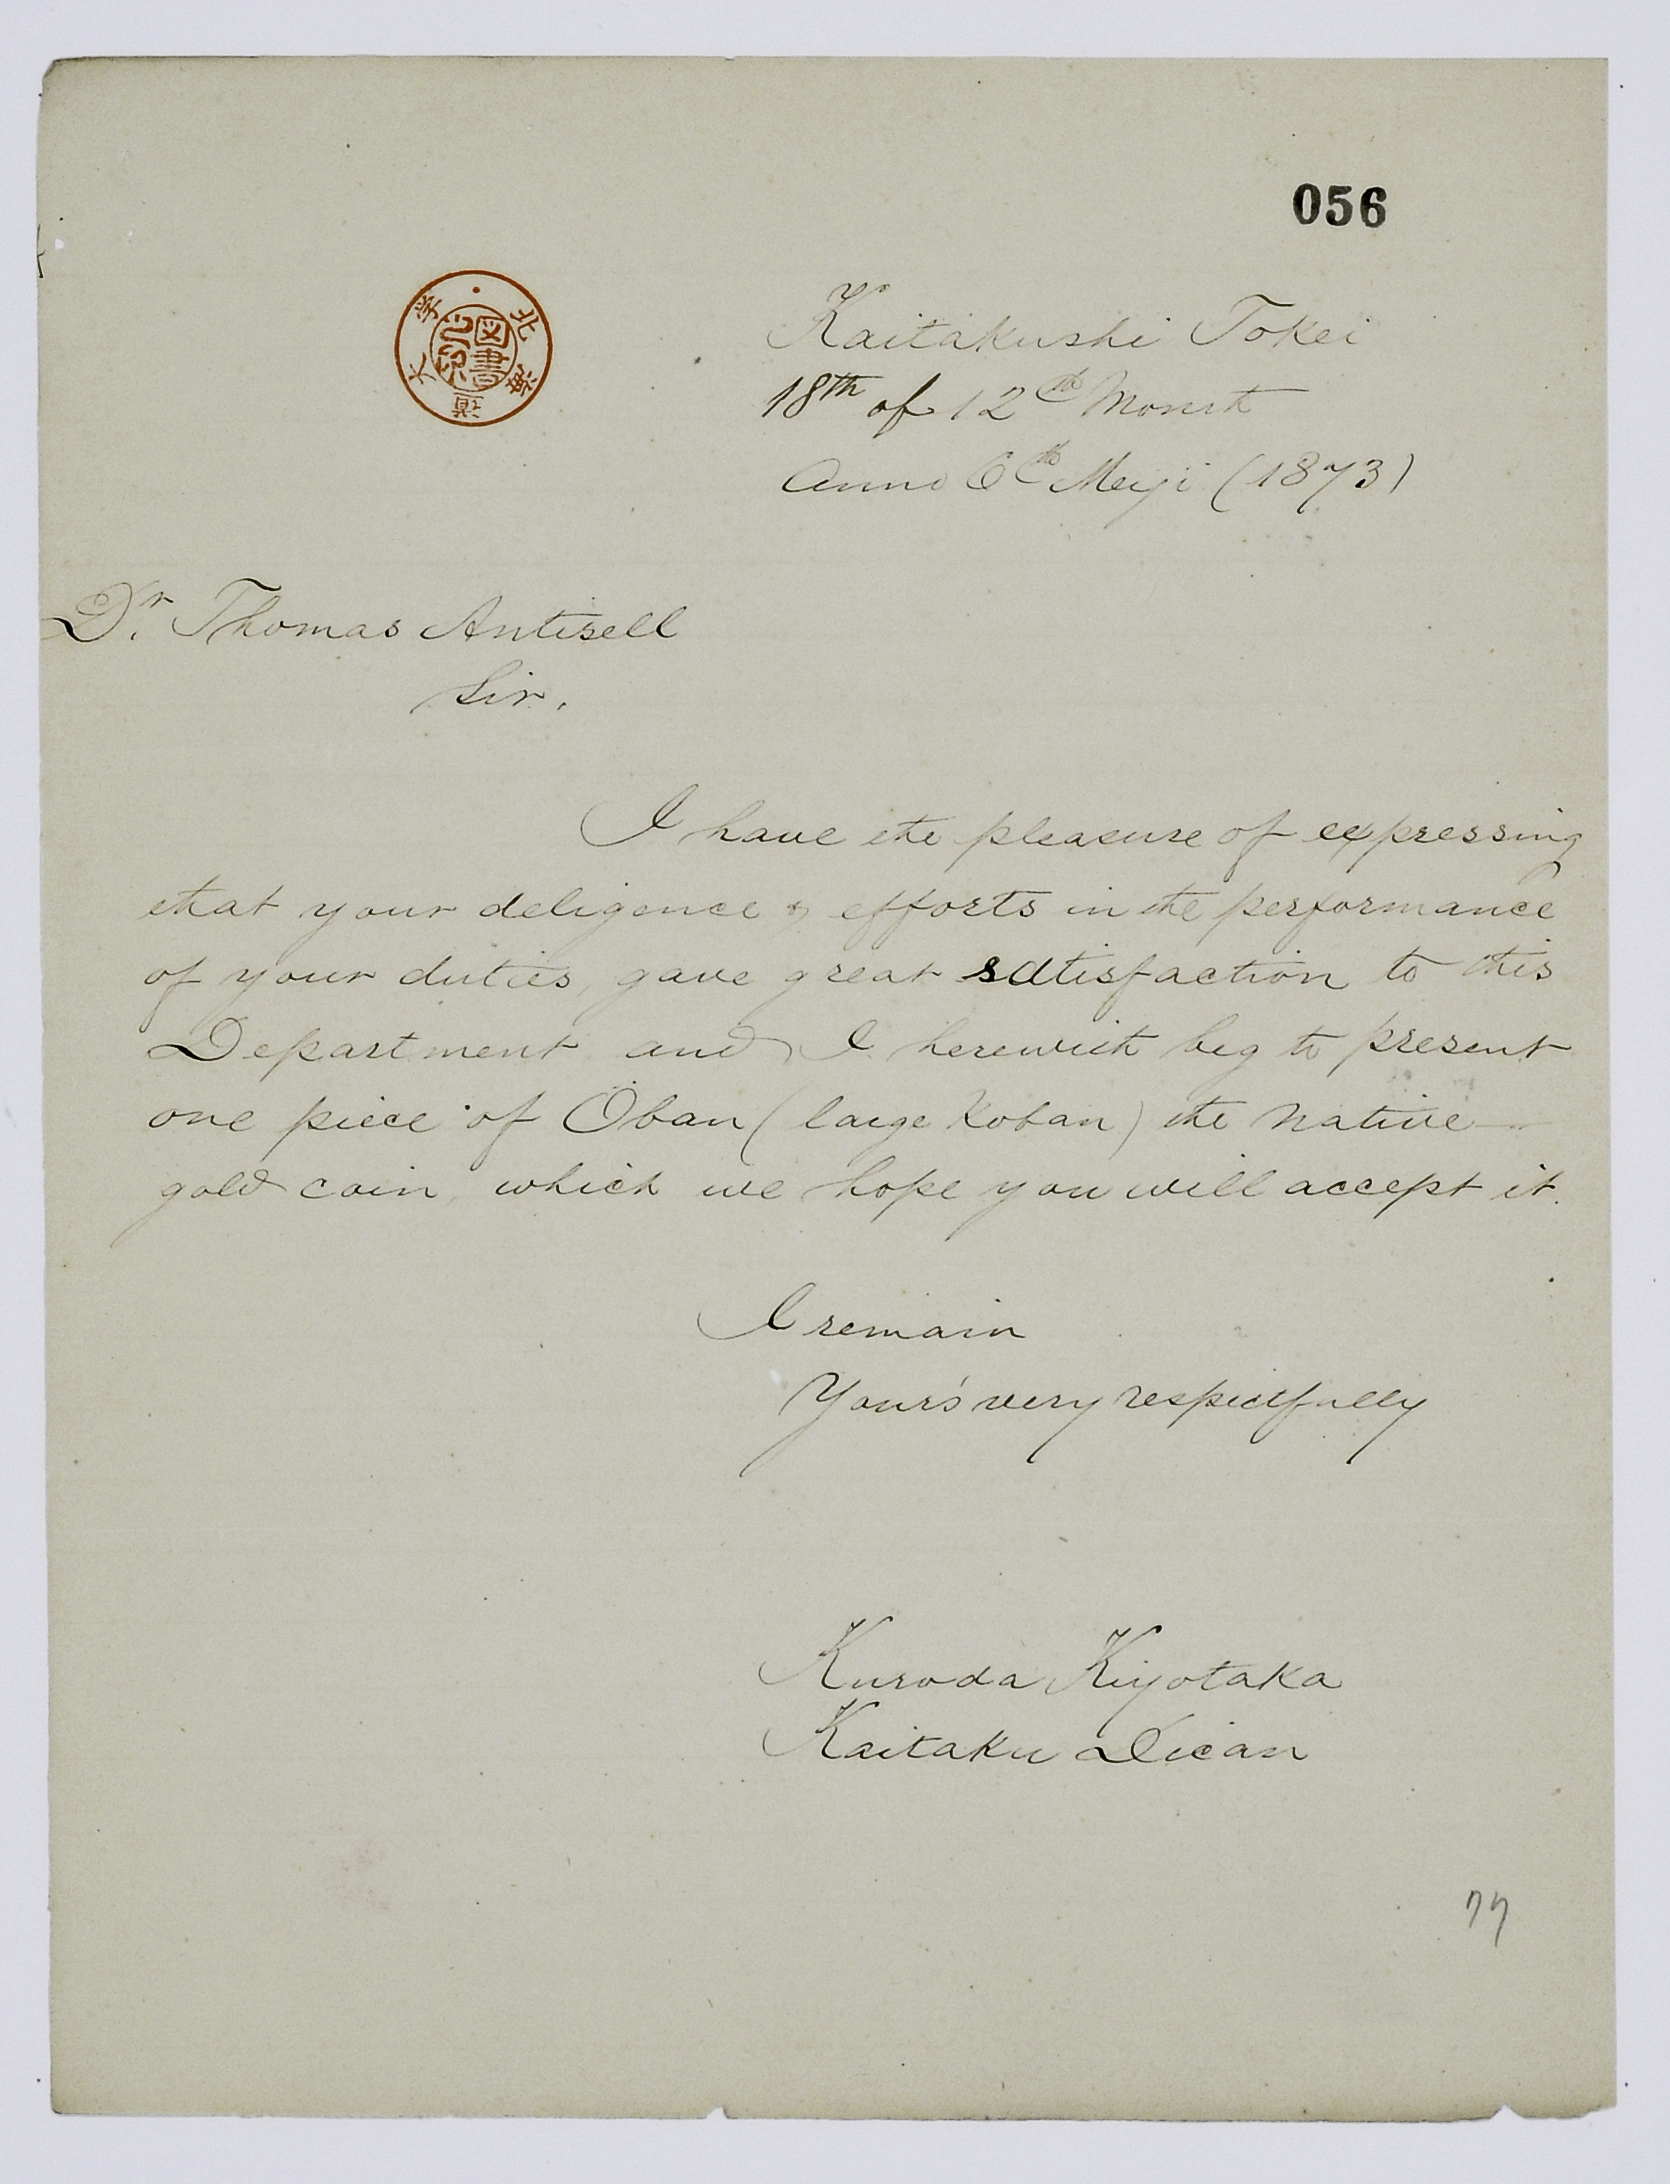 056
北海道大学
図書之印
Kaitakushi Tokei
18th of 12th Month
Anno 6th Meiji (1873)
Dr. Thomas Antisell
Sir,
I have the pleasure of expressing
that your deligence & efforts in the performance
of your duties, gave great satisfaction to this
Department and, I herewith beg to present
one piece of Oban (large Koban) the native
gold coin, which we hope you will accept it.
I remain
Your's very respectfully
Kuroda Kiyotaka
Kaitaku Dican
77